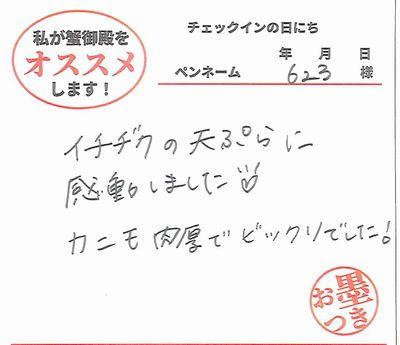 私が蟹御殿を
オススメ
します!
チェックインの日にち
年 月 日
ペンネーム 623 様
イチヂクの天ぷらに
感動しました
カニモ肉厚でビックリでした!
お墨つき